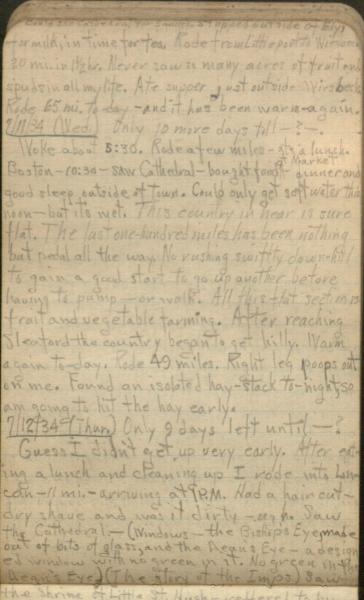 outside of Ely,
for milk, in time for tea. Rode from Littleport to Wis
20 mi. in 1½ hr. Never saw so many acres of fruit and
spuds in all my life. Ate supper just outside Wisbech.
Rode 65 mi. to-day - and it has been warm again.
7/11/34 (Wed.) Only 10 more days till - ? -.
Woke about 5:30. Rode a few miles - ate a lunch.
Boston - 10:30 - saw Cathedral - bought food at Market dinner and
good sleep outside of town. Could only get soft water this
noon - but it's wet. This country in hear is sure
flat. The last one-hundred miles has been nothing
but pedal all the way. No rushing swiftly down-hill
to gain a good start to go up another before
having to pump - or walk. All this flat section is
fruit and vegetable farming. After reaching
Sleaford the country began to get hilly. Warm
again to-day. Rode 49 miles. Right leg poops out
on me. Found an isolated hay-stack to-night, so
am going to hit the hay early.
7/12/34 (Thur.) Only 9 days left until - ?
Guess I didn't get up very early. After eat-
ing a lunch and cleaning up I rode into Lin-
coln - 11 mi. - arriving at 1 P.M. Had a hair cut -
dry shave and was it dirty - ugh. Saw
the Cathedral: - (Windows - the Bishop's Eye, made
out of bits of glass, and the Dean's Eye - a design
ed window with no green in it. No green in the
Dean's Eye) (The story of the Imps) Saw
the Shrine of Little St. Hugh -